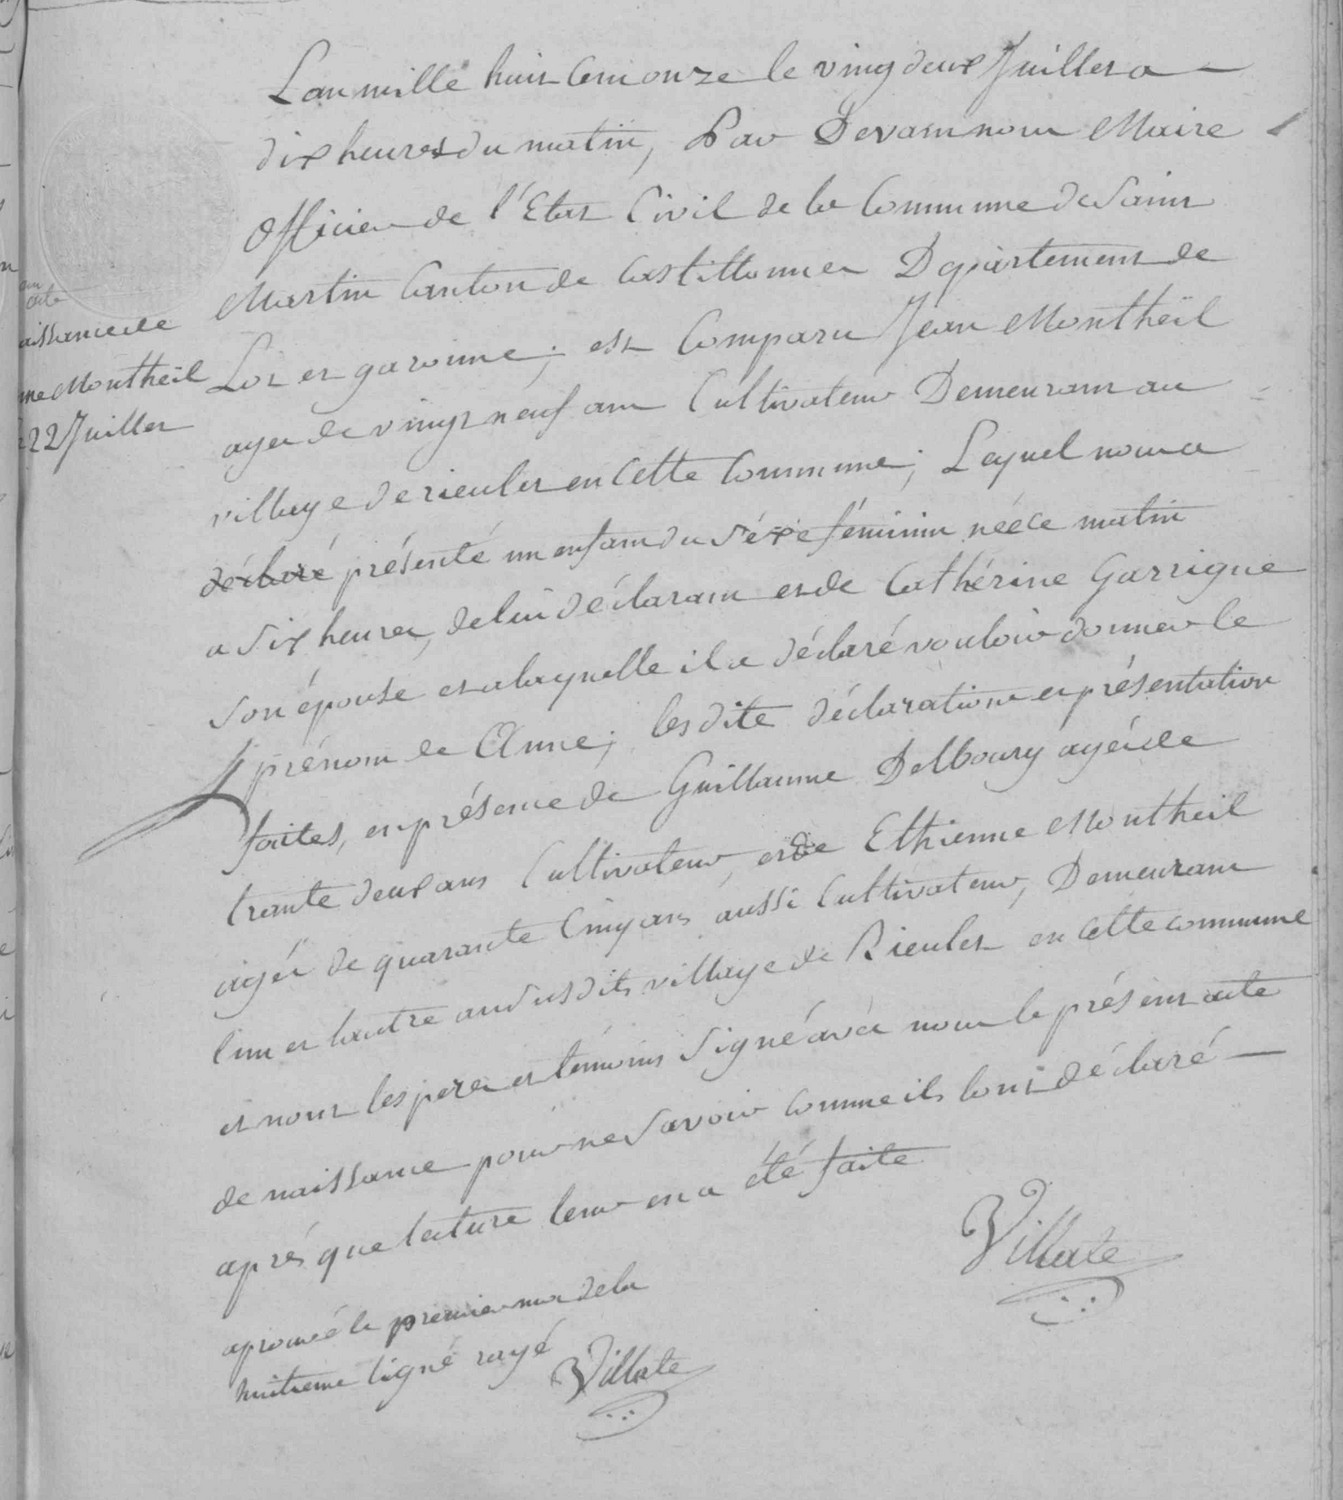 aissance de
ne Montheil
22 Juillet
L'an mille huit cent onze le vingt deux Juillet a
dix heures du matin, Par Devant nous Maire
Officier de l'Etat Civil de la Commune de Saint
Martin Canton de Castillonnes Département de
Lot et garonne; est Comparu Jean Montheïl
agé de vingt neuf ans Cultivateur Demeurant au
village de rieulet en Cette Commune; Lequel nous a
déclaré présenté un enfant du séxe féminin née ce matin
a six heures, de lui déclarant et de Cathérine Garrigue
son épouse et a laquelle il a déclaré vouloir donner le
prénom de Anne; les dite déclaration et présentation
faites, en présence de Guillaume Delboury agé de
trante deux ans Cultivateur, et de Ethienne Montheil
agé de quarante Cinq ans aussi Cultivateur, Demeurant
l'un et l'autre au susdits village de Rieulet en Cette commune
et nont les pere et témoins Signé avec nous le présent acte
de naissance pour ne Savoir comme ils l'ont déclaré
aprés que lecture leur en a été faite
Villate
aprouvé le premier mot de la
huitieme ligne rayé
Villate